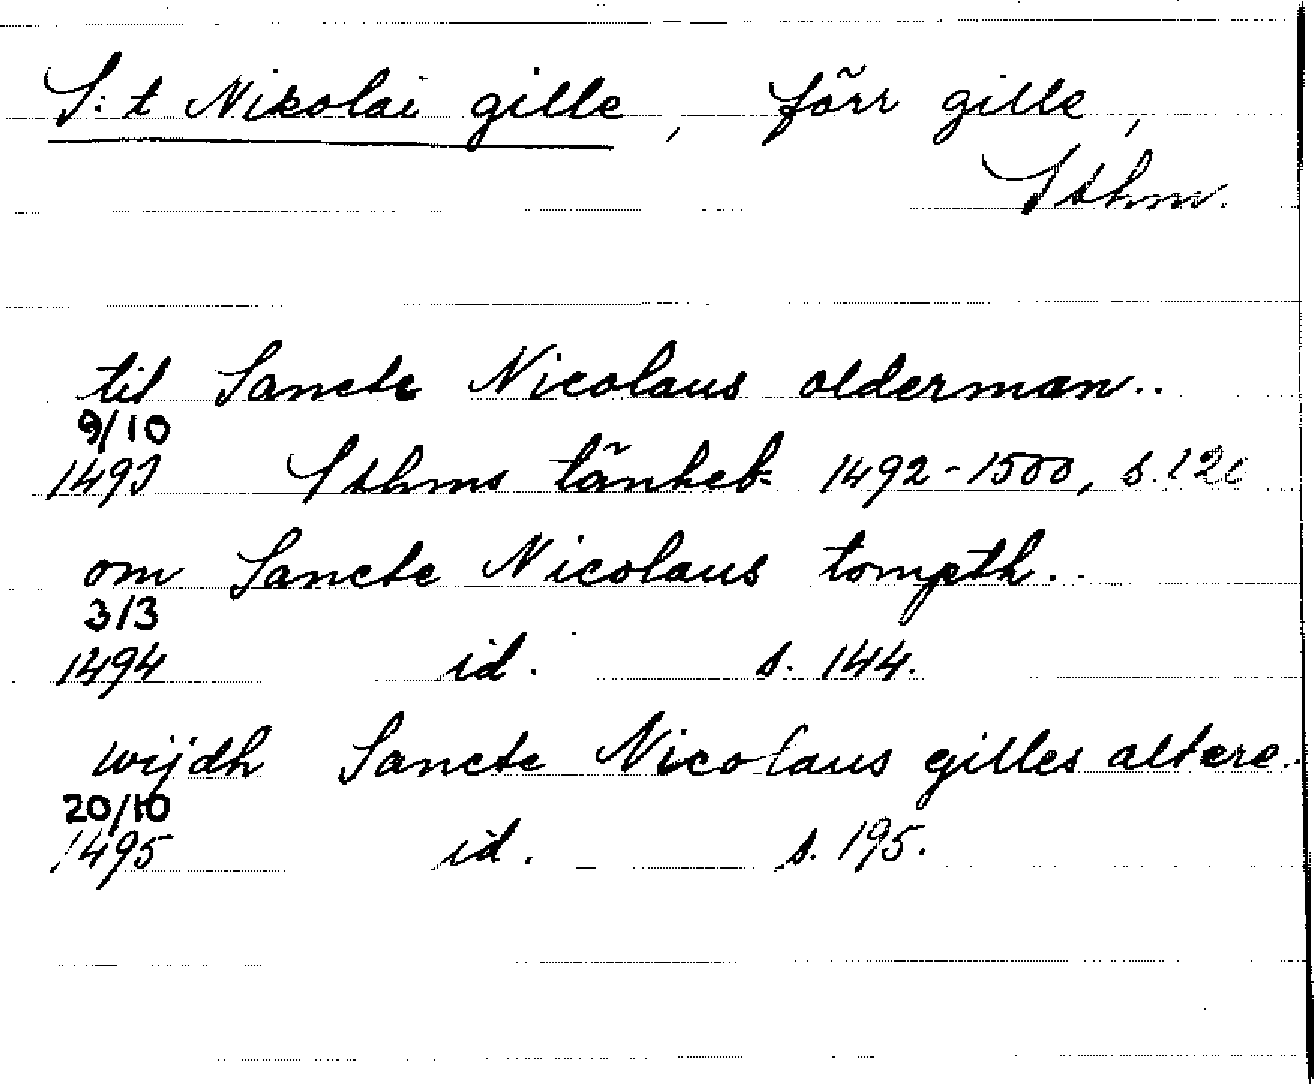 S:t Nikolai gille, förr gille,
Sthm.
til Sancte Nicolaus olderman..
9/10
1493 Sthms tänkeb. 1492-1500, s.
om Sancte Nicolaus tompth..
3/3
1494 id. s. 144.
wijdh Sancte Nicolaus gilles altere..
20/10
1495 id. s. 195.